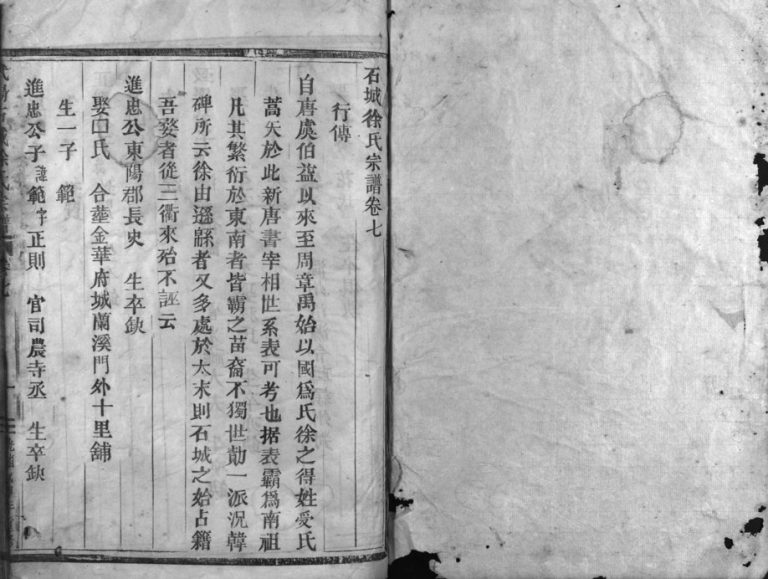 石城徐氏宗譜卷七
行傳
自唐虞伯益以來至周章禹始以國為氏徐之得姓受氏
蒿矢於此新唐書宰相世系表可考也据表霸為南祖
凡其繁衍於東南者皆霸之苗裔不獨世勣一派況韓
碑所云徐由遜綿者又多處於太末則石城之始占籍
吾婺者從三衢來殆不誣云
進忠公東陽郡長史 生卒缺
娶口氏 合葬金華府城蘭溪門外十里舖
生一子 範
進忠公子諱範字正則 官司農寺丞 生卒缺